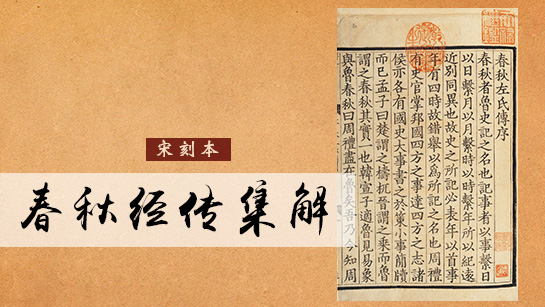 宋刻本
春秋经传集解
春秋左氏傳序
春秋者魯史記之名也記事者以事繫日
以日繫月以月繫時以時繫年所以紀遠
近別同異也故史之所記必表年以首事
年有四時故錯舉以為所記之名也周禮
有史官掌邦國四方之事達四方之志諸
侯亦各有國史大事書之於策小事簡牘
而已孟子曰楚謂之檮杌晉謂之乘而魯
謂之春秋其實一也韓宣子適魯見易象
與魯春秋曰周禮盡在魯矣吾乃今知周